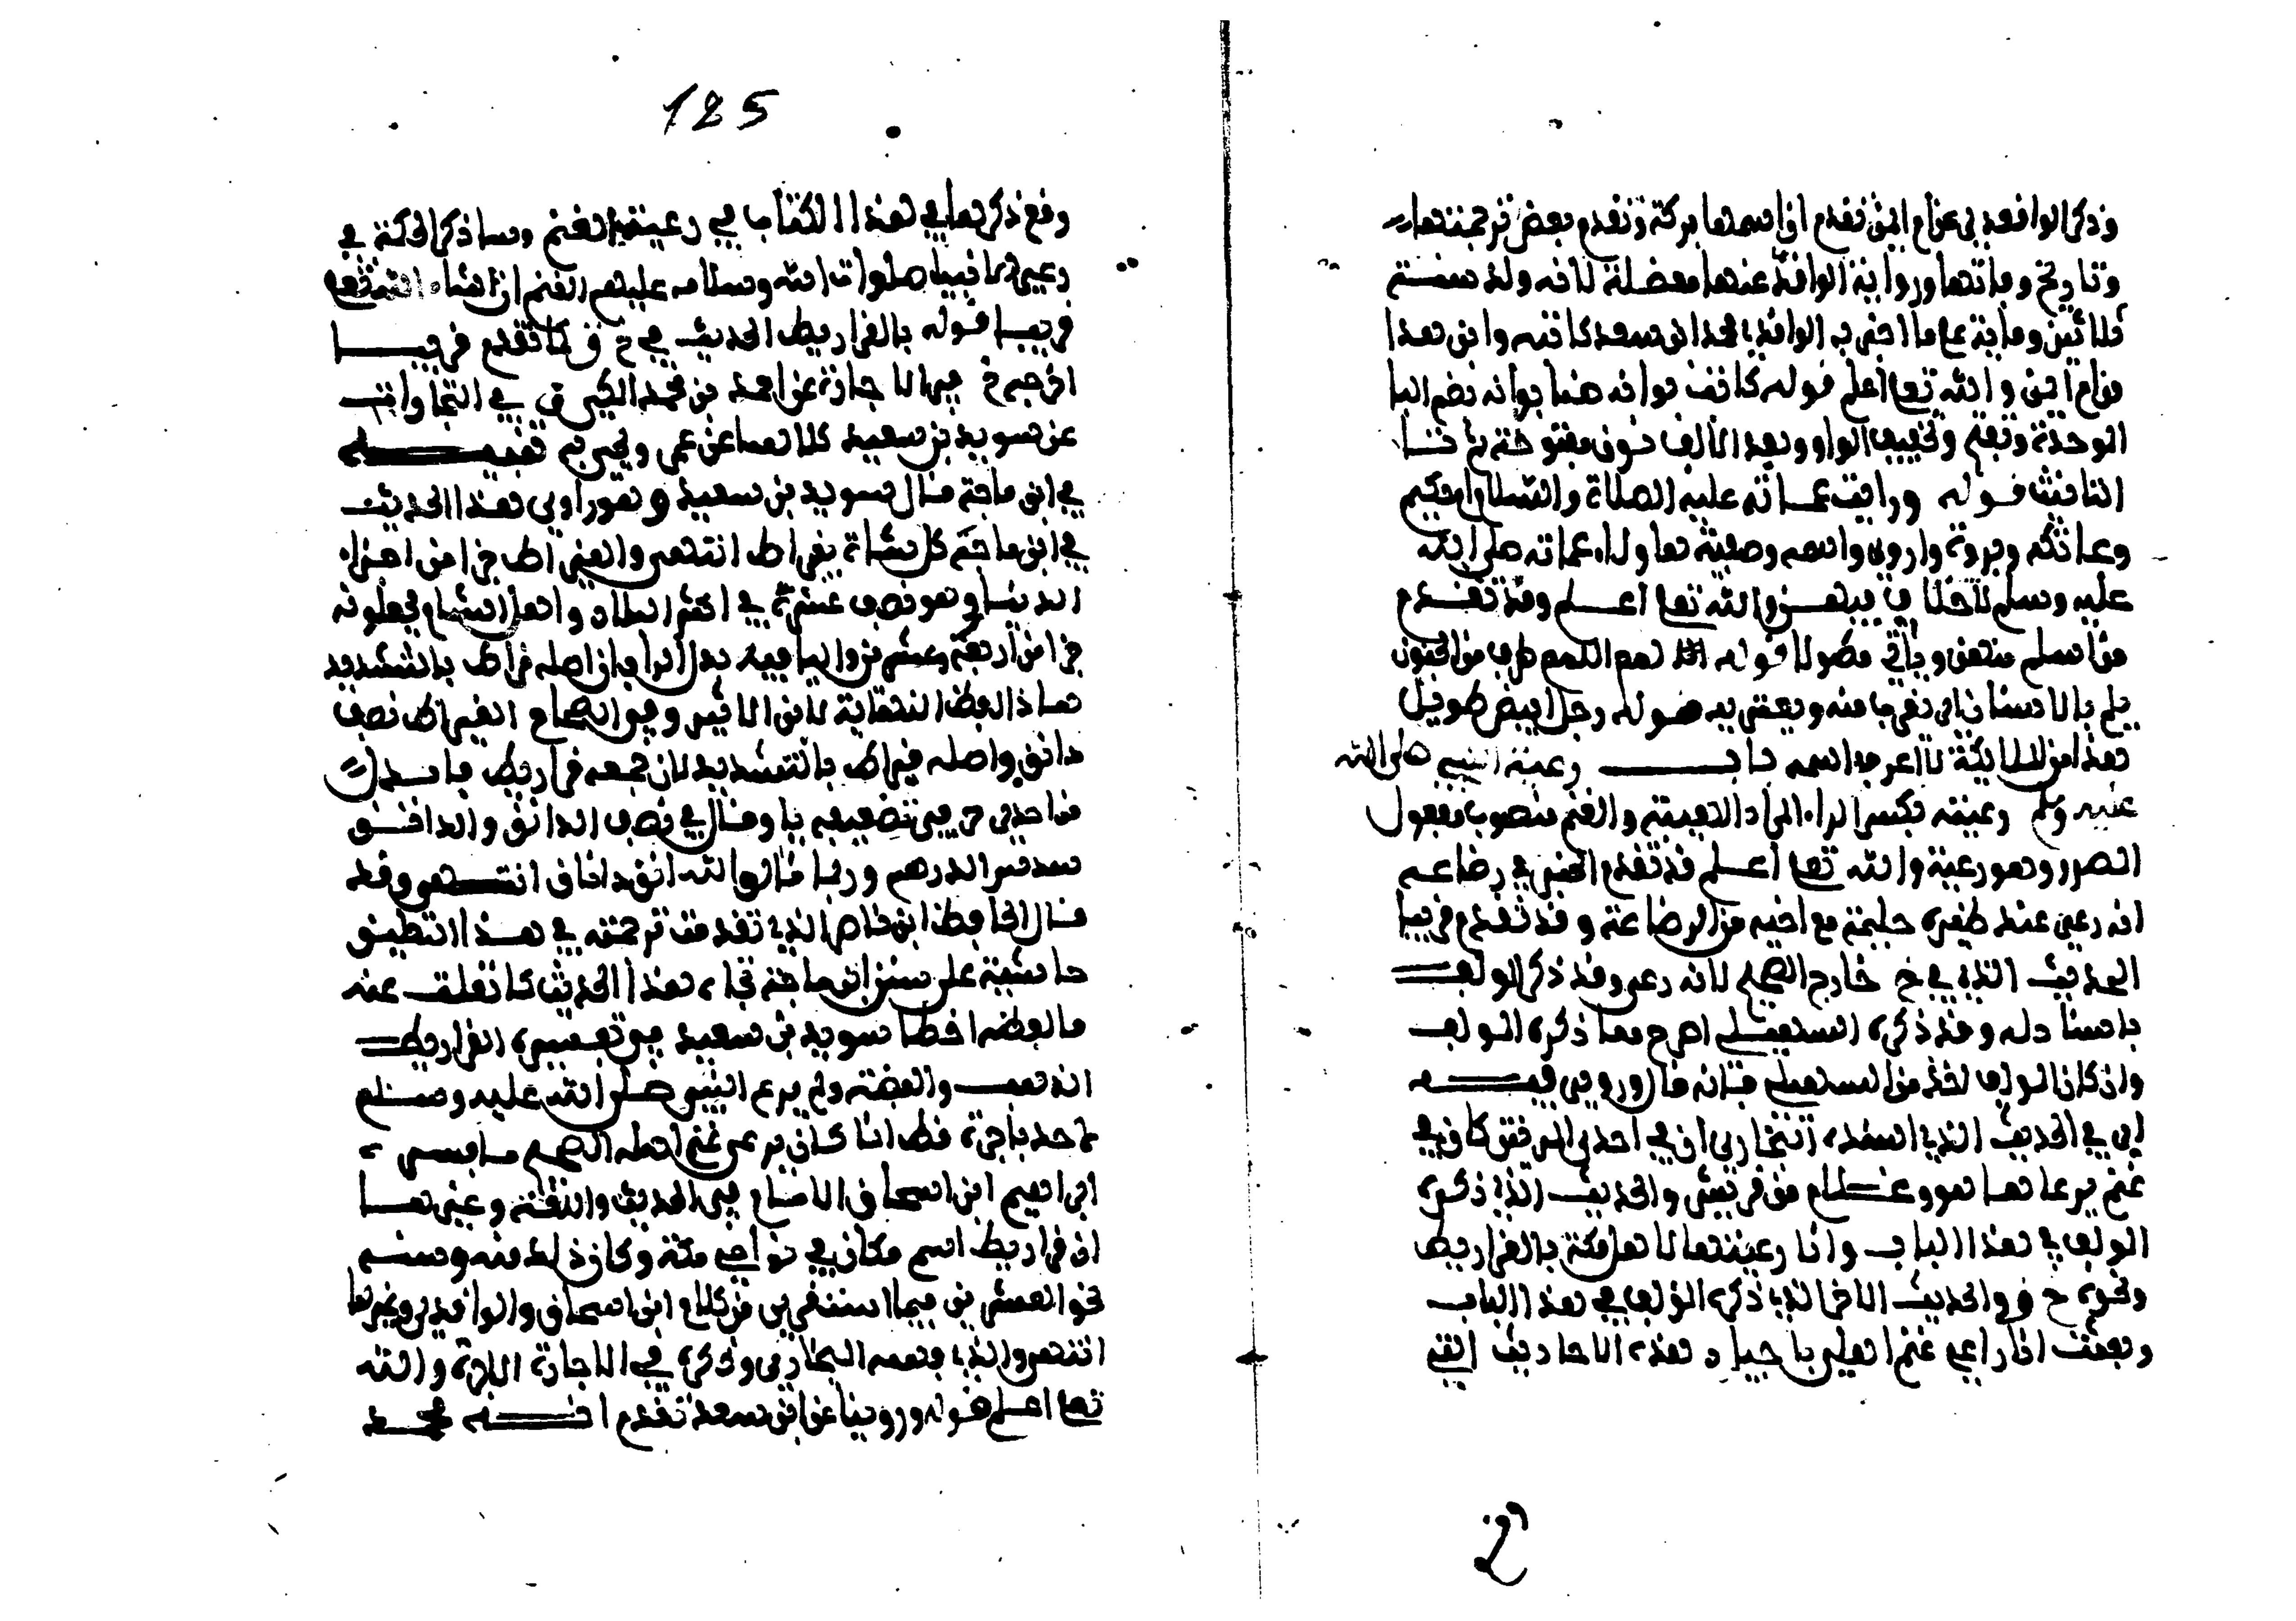 وذكر الواقدي عن ام ايمن تقدم ان اسمها بركة وتقدم بعض ترجمتها
وتاريخ وفاتها ورواية الواقدي عنها معضلة لانه ولد سنة
ثلاثين ومائة مع ما اخبر به الواقدي محمد ابن سعد كاتبه واين هذا
من ام ايمن والله تعا اعلم قوله كانت بوانة هنا بوانه بضم البا
الموحدة وتفتح وتخفيف الواو وبعد الالف نون مفتوحة ثم تا
التانيث قوله ورايت عماته عليه الصلاة والسلام ام حكيم
وعاتكه وبرة واروى واميمه وصفية هاولاء عماته صلى الله
عليه وسلم
من اسلم منهن وياتي مطولا قوله لمم اللمم طرف من الجنون
يلم بالانسان اي يقرب منه ويعتريه قوله رجل ابيض طويل
هذا من الملايكة لا اعرف اسمه باب رعية النبي صلى الله
عليه وسلم رعيته بكسر الراء المراد الهيئة والغنم منصوب مفعول
المصدر وهو رعية والله تعا اعلم قد تقدم الخبر في رضاعه
انه رعى عند ظئره حليمة مع اخيه من الرضاعة وقد تقدم قريبا
الحديث الذي في خ خارج الصحيح لانه رعى وقد ذكر المولف
باسناد له وقد ذكره السهيلي اصرح مما ذكره المولف
وان كان المولف اخذ من السهيلي فانه قال وروي فيه
اي في الحديث الذي اسنده البخاري ان في احدى المرتين كان في
غنم يرعاها هو وغلام من قريش والحديث الذي ذكره
المولف في هذا الباب وانا رعيتها لاهل مكة بالقراريط
ونحوه خ ق والحديث الاخر الذي ذكره المؤلف في هذا الباب
وبعثت انا راعي غنم اهلي باجياد هذه الاحاديث التي
125
وقع ذكرها في هذا الكتاب في رعيته الغنم وساذكر الحكمة في
رعي الانبيا صلوات الله وسلامه عليهم الغنم ان شاء الله تعا
قريبا قوله بالقراريط الحديث في خ ق كما تقدم قريبا
اخرجه خ في الاجارة عن احمد بن محمد المكي ق في التجارات
عن سويد بن سعيد كلاهما عن عمرو بن يحيى به تنبيه
في ابن ماجة قال سويد بن سعيد وهو راوي هذا الحديث
في ابن ماجة كل شاة بقيراط انتهى والقيراط جزء من اجزاء
الدينار وهو نصف عشره في اكثر البلاد واهل الشام يجعلونه
جزا من اربعة وعشرين واليا فيه بدل الراء فان اصله قراط بالتشديد
هذا لفظ النهاية لابن الاثير وفي الصحاح القيراط نصف
دانق واصله قراط بالتشديد لان جمعه قراريط فابدل
من احدى حرفي تضعيفه يا وقال في نصف الدانق والدانق
سدس الدرهم وربما قالوا للدانق داناق انتهى وقد
قال الحافظ ابن ناصر الذي تقدمت ترجمته في هذا التعليق
حاشية على سنن ابن ماجة تجاه هذا الحديث كما نقلت عنه
ما لفظه اخطا سويد بن سعيد في تفسيره القراريط
الذهب والفضة ولم يرع النبي صلى الله عليه وسلم
لاحد باجرة قط انما كان يرعى غنم اهله الصحيح ما فسره
ابراهيم ابن اسحاق الامام في الحديث واللغة وغيرها
ان قراريط اسم مكان في نواحي مكة وكان ذلك منه وسنه
نحو العشرين فيما استقري من كلام ابن اسحاق والواقدي وغيرها
انتهى والذي فهمه البخاري وذكره في الاجارة الاجرة والله
تعا اعلم قوله وروينا عن ابن سعد تقدم انه محمد